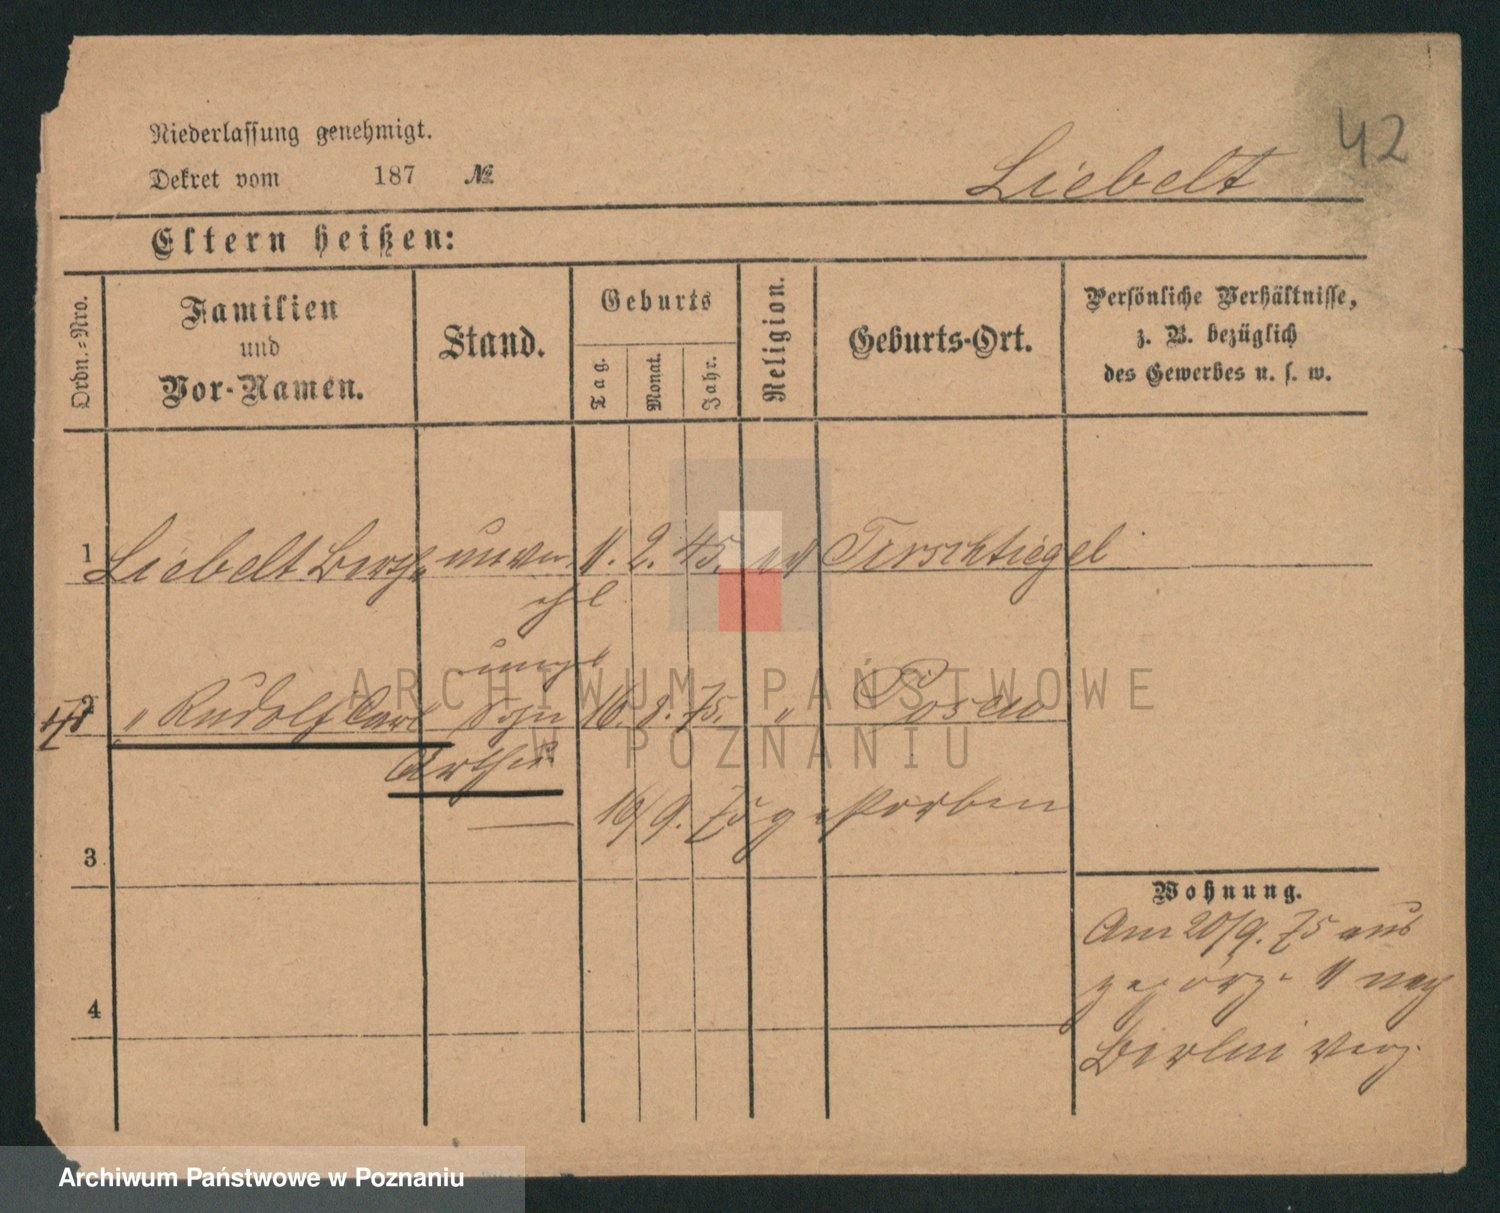 42
Niederlassung genehmigt.
Dekret vom 187 №
Liebelt
Eltern heißen:
Ordn.-Nro.
Familien
und
Vor-Namen.
Stand.
Geburts
Tag.
Monat.
Jahr.
Religion.
Geburts-Ort.
Persönliche Verhältnisse,
z. B. bezüglich
des Gewerbes u. s. w.
1 Liebelt Bertha unver 11. 2. 45. ev Tirschtiegel
ehl
unehl
2 " Rudolf Carl Sohn 16. 8. 75. " Posen
Arthur
16/9. 75 gestorben
3
Wohnung.
Am 20/9. 75 aus
11 nach
4
Berlin verz.
ARCHIWUM PAŃSTWOWE
W POZNANIU
Archiwum Państwowe w Poznaniu